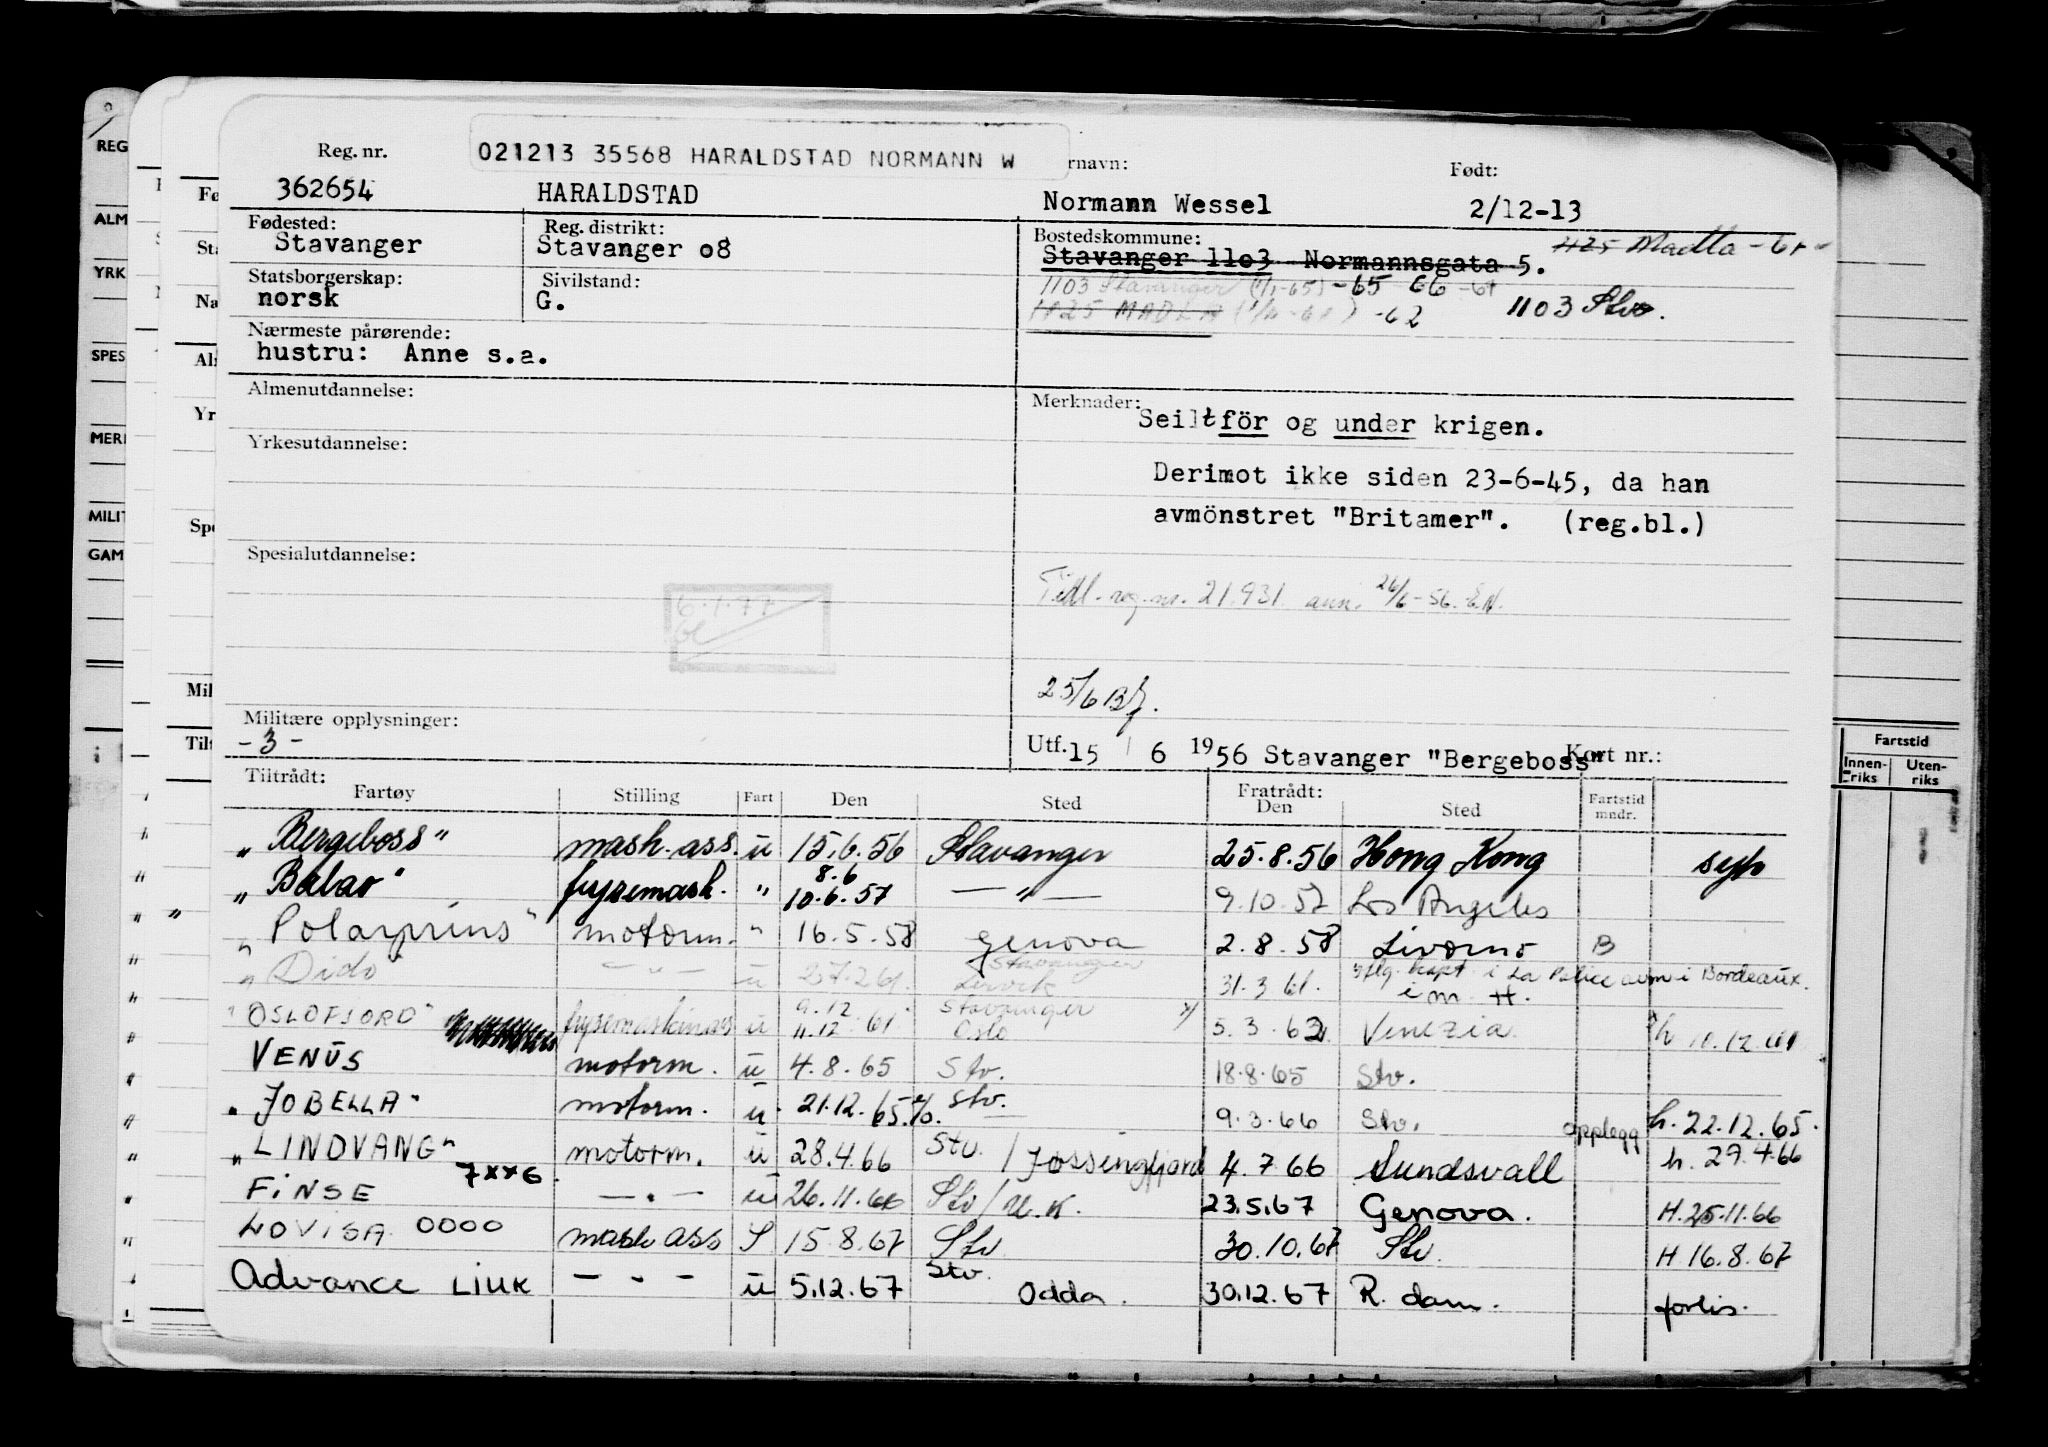 021213 35568 HARALDSTAD NORMANN W
Reg. nr. rnavn: Født:
362654 HARALDSTAD Normann Wessel 2/12-13
Fødested: Reg. distrikt: Bostedskommune:
Stavanger Stavanger o8 Stavanger 11o3 Normannsgata 5. 1125 Madla
Statsborgerskap: Sivilstand: 1103 Stavanger -65 66
norsk G. 1125 MADLA -62 1103 Stv.
Nærmeste pårørende:
hustru: Anne s.a.
Almenutdannelse: Merknader:
Seilt för og under krigen.
Yrkesutdannelse:
Derimot ikke siden 23-6-45, da han
avmönstret "Britamer". (reg.bl.)
Spesialutdannelse:
Tidl. reg. nr. 21.931 ann. 26/6-56. EN.
6.1.77
25/6
Militære opplysninger:
- 3 - Utf. 15 / 6 1956 Stavanger "Bergeboss" Kort nr.:
Tiltrådt: Fratrådt:
Fartøy Stilling Fart Den Sted Den Sted Fartstid mndr.
„ Bergeboss" mask. ass. u 15.6.56 Stavanger 25.8.56 Hong Kong syk
8.6
„ Balao" frysemask. " 10.6.57 — " — 9.10.57 Los Angeles
„ Polarprins" motorm. " 16.5.58 Genova 2.8.58 Livorno B
Stavanger
„ Dido" — " — u 27.2.61. Lervik 31.3.61. i La Police avm i Bordeaux.
9.12 Stavanger
" OSLOFJORD" u 11.12.61 Oslo 5.3.62 Venezia h 11.12.61
VENUS motorm. u 4.8.65 Stv. 18.8.65 Stv.
„ JOBELLA" motorm. u. 21.12.65 Stv. 9.3.66 Stv. opplegg h. 22.12.65.
„ LINDVANG" motorm. u 28.4.66 Stv. / Jøssingfjord 4.7.66 Sundsvall h. 29.4.66
7xx6
FINSE — " — u 26.11.66 Stv / U.K. 23.5.67 Genova. H. 25.11.66
LOVISA 0000 mask ass S 15.8.67 Stv 30.10.67 Stv. H 16.8.67
Advance LINK — " — u 5.12.67 Stv. Odda. 30.12.67 R.dam. forlis.
REG
ALM
YRK
SPES
MERI
MILIT
GAM
Fø
Sta
Na
Alm
Yr
Spe
Mil
Tilt
Fartstid
Innen-riks Uten-riks